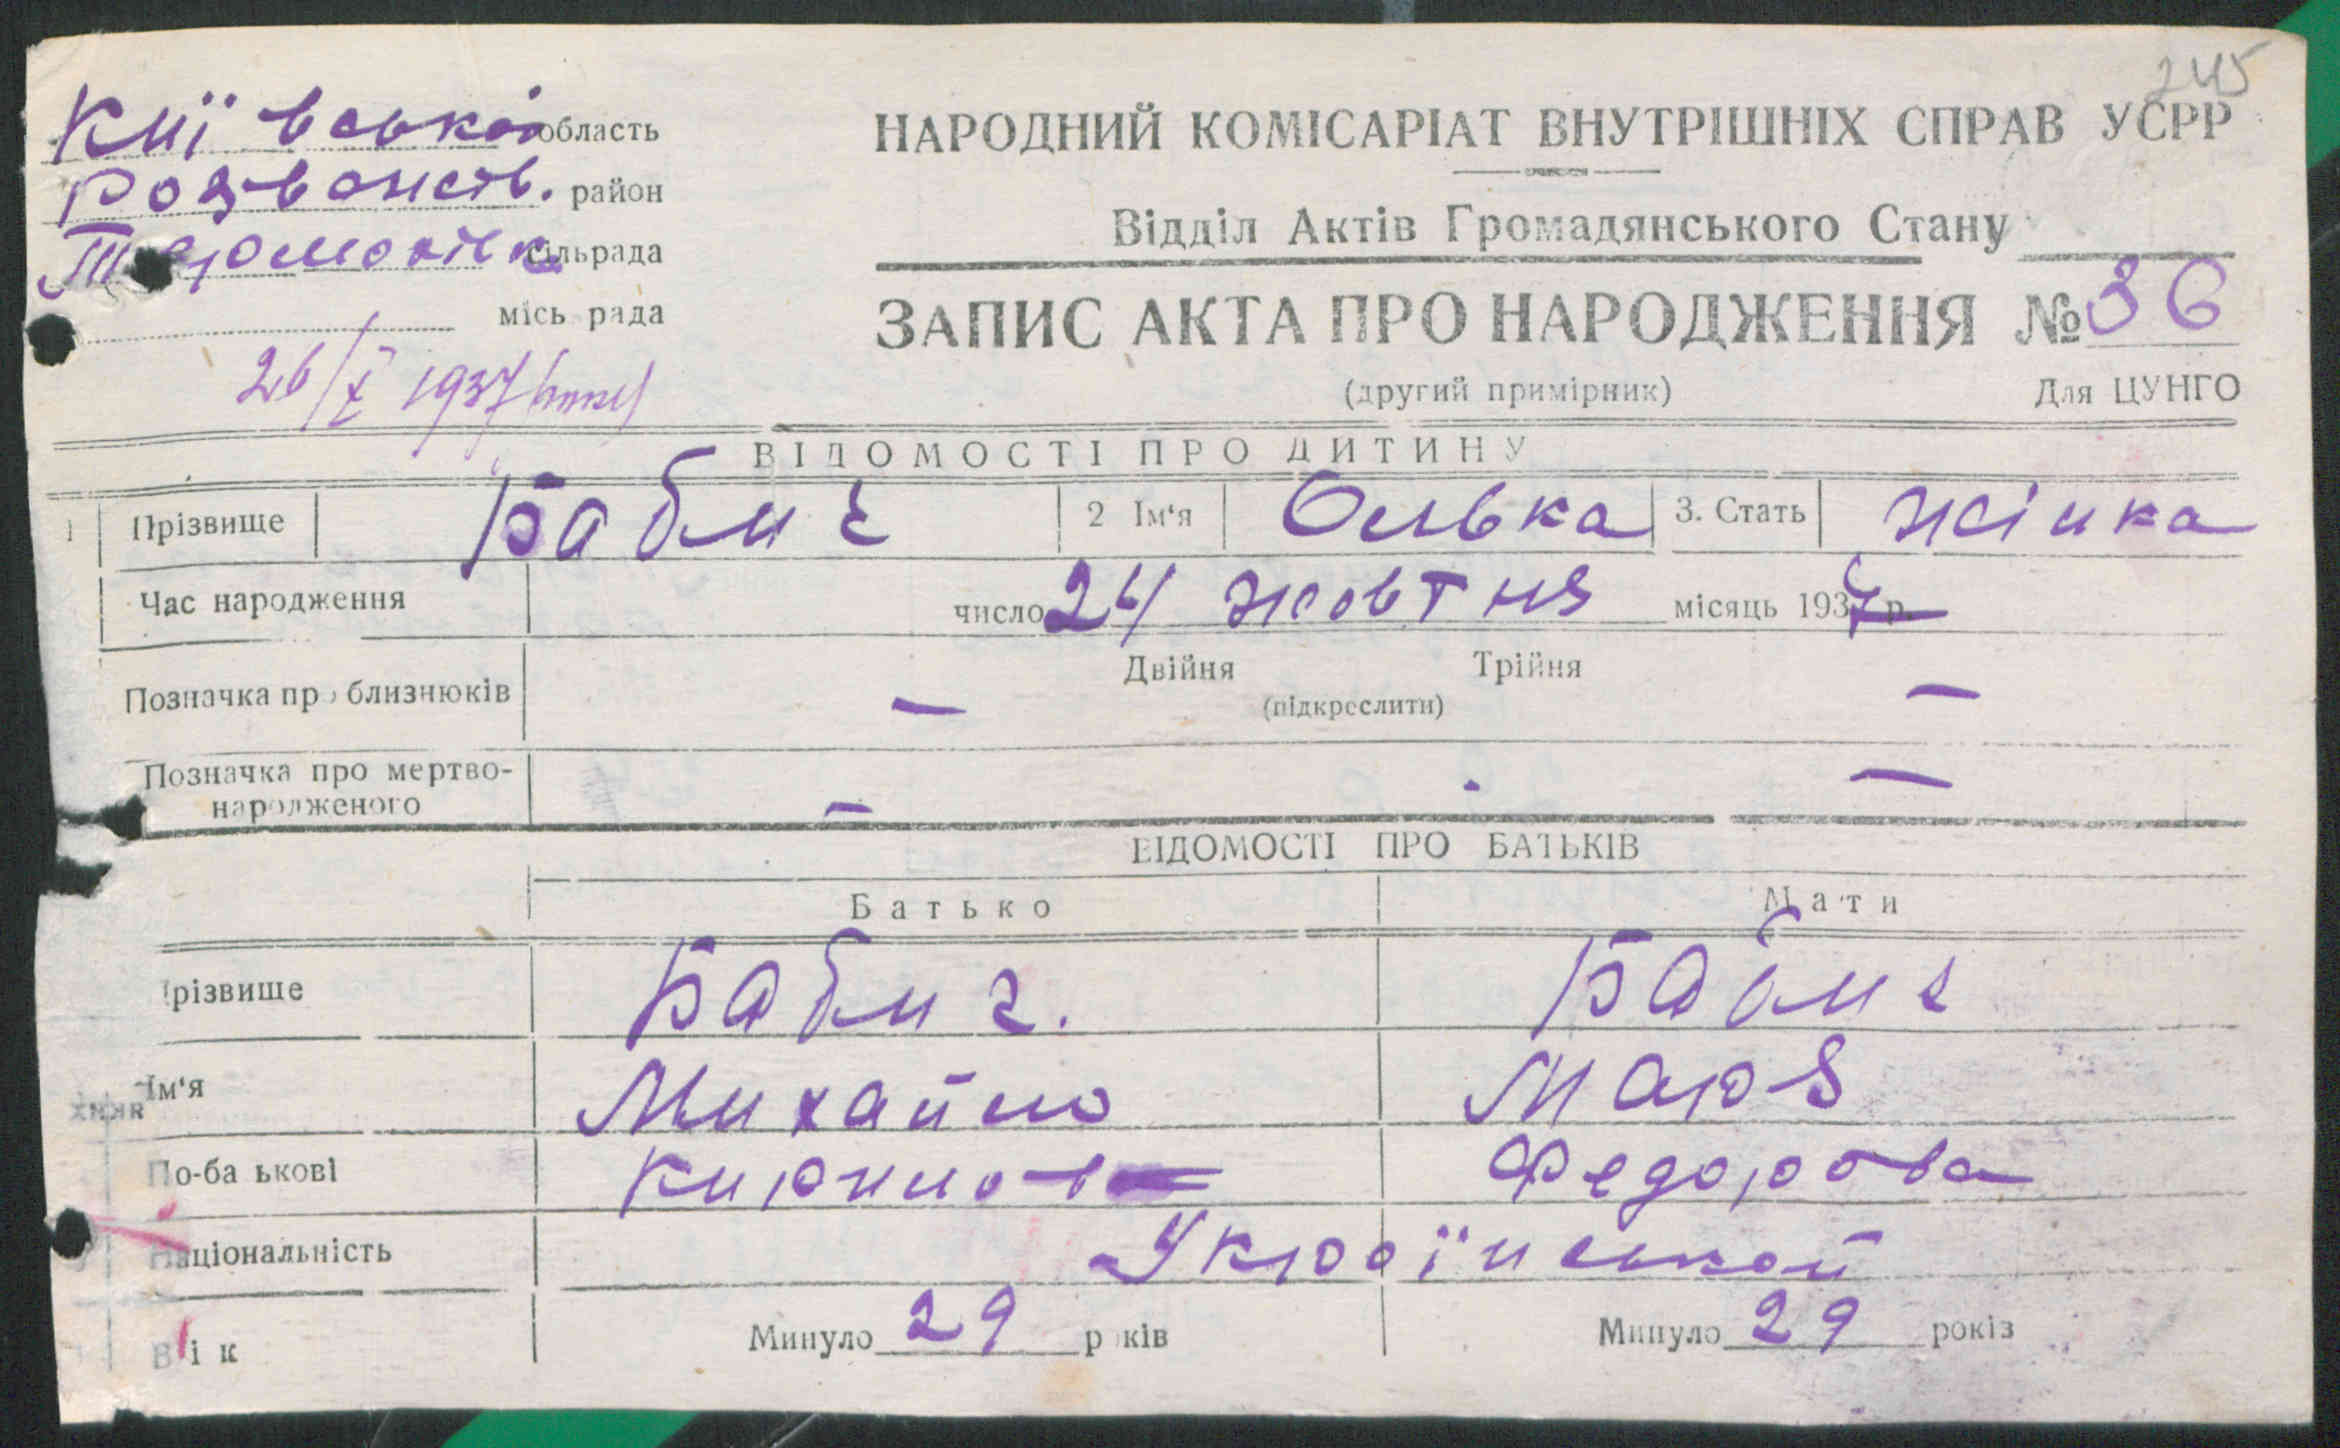 245
Київська область
Розважів. район
сільрада
місь рада
26/X 1937
НАРОДНИЙ КОМІСАРІАТ ВНУТРІШНІХ СПРАВ УСРР
Відділ Актів Громадянського Стану
ЗАПИС АКТА ПРО НАРОДЖЕННЯ № 36
(другий примірник) Для ЦУНГО
ВІДОМОСТІ ПРО ДИТИНУ
1 Прізвище Бабич 2 Ім'я Олька 3. Стать жінка
Час народження число 24 жовтня місяць 1937 р.
Позначка про близнюків — Двійня Трійня —
(підкреслити)
Позначка про мертво-
народженого — —
ВІДОМОСТІ ПРО БАТЬКІВ
Батько Мати
різвище Бабич. Бабич
Ім'я Михайло Марія
По-ба ькові Кирилов Федорова
Національність Українськой
Вік Минуло 29 р ків Минуло 29 років